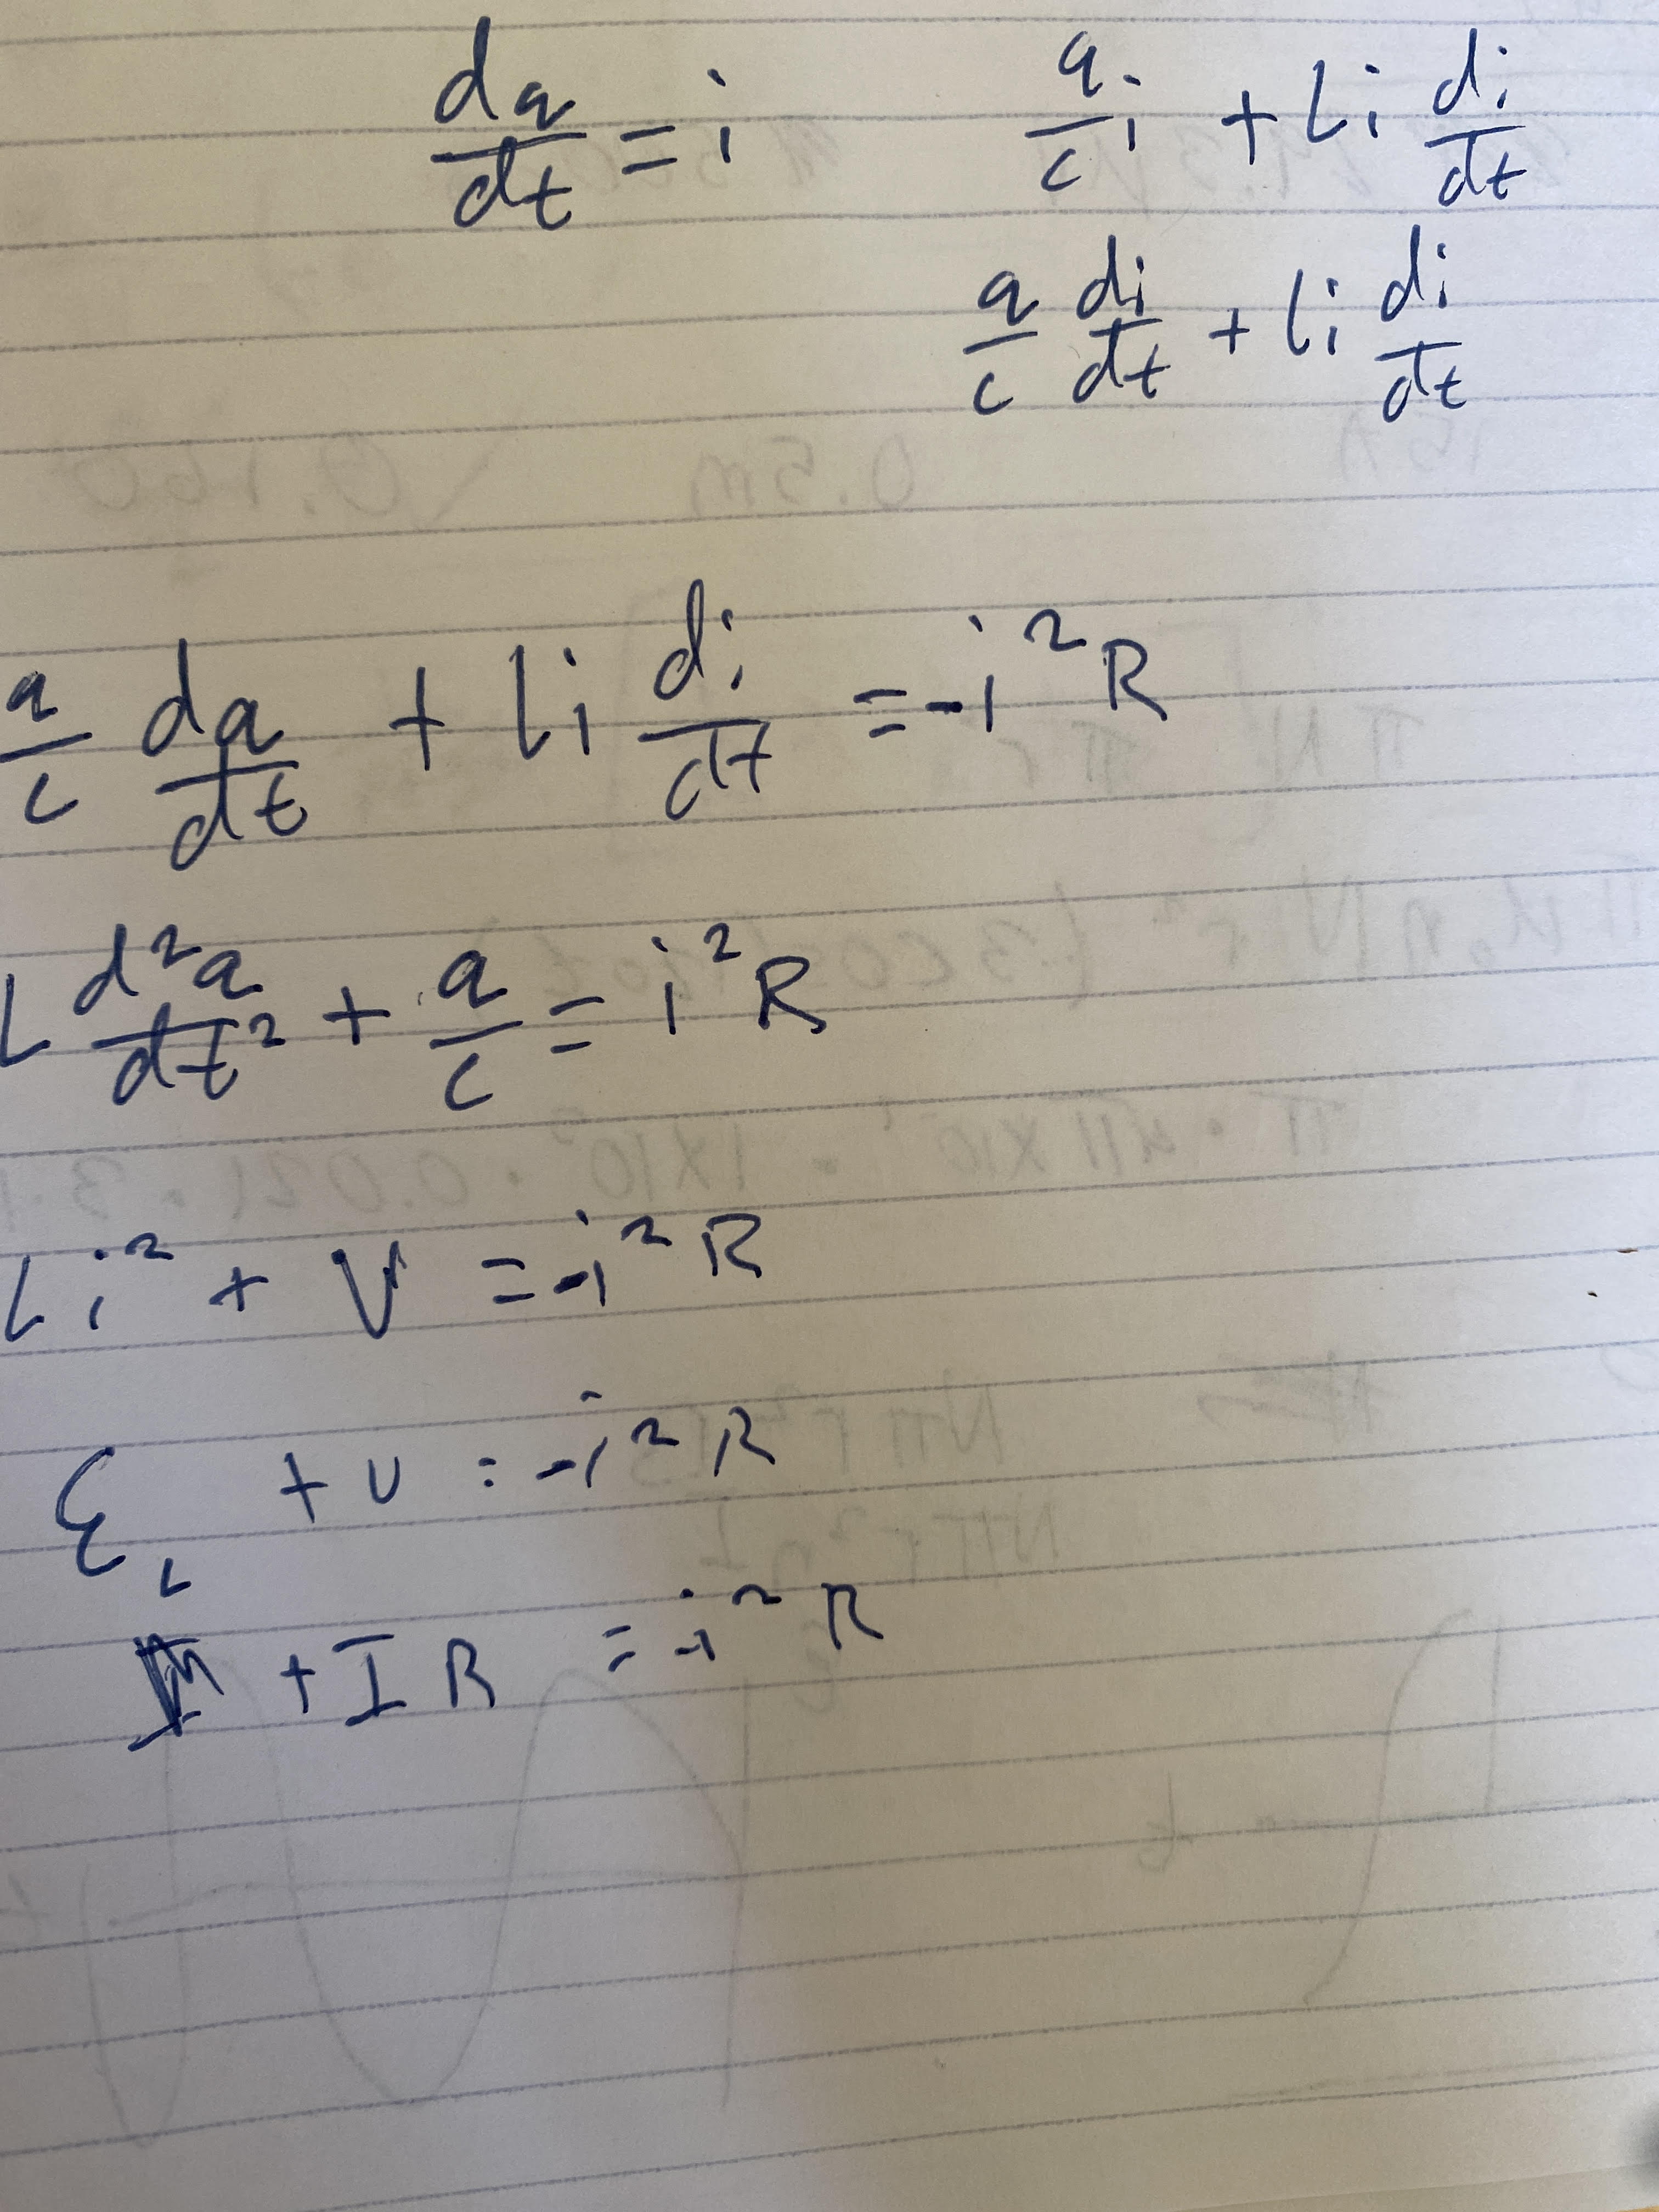 dq/dt = i    q/c i + Li di/dt
q/c di/dt + Li di/dt
q/c dq/dt + Li di/dt = -i²R
L d²q/dt² + q/c = i²R
Li² + V = -i²R
ℰ_L + V = -i²R
+ IR = -i²R